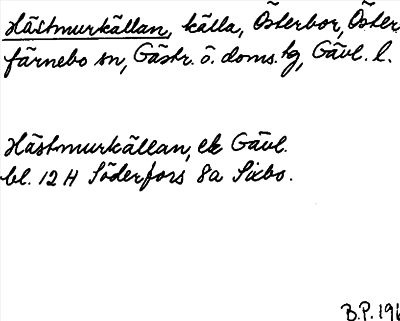 Hästmurkällan, källa, Österbor, Öster
färnebo sn, Gästr. ö. doms. tg, Gävl. l.
Hästmurkällan, ek Gävl.
bl. 12 H Söderfors 8a Sixbo.
B.P. 196